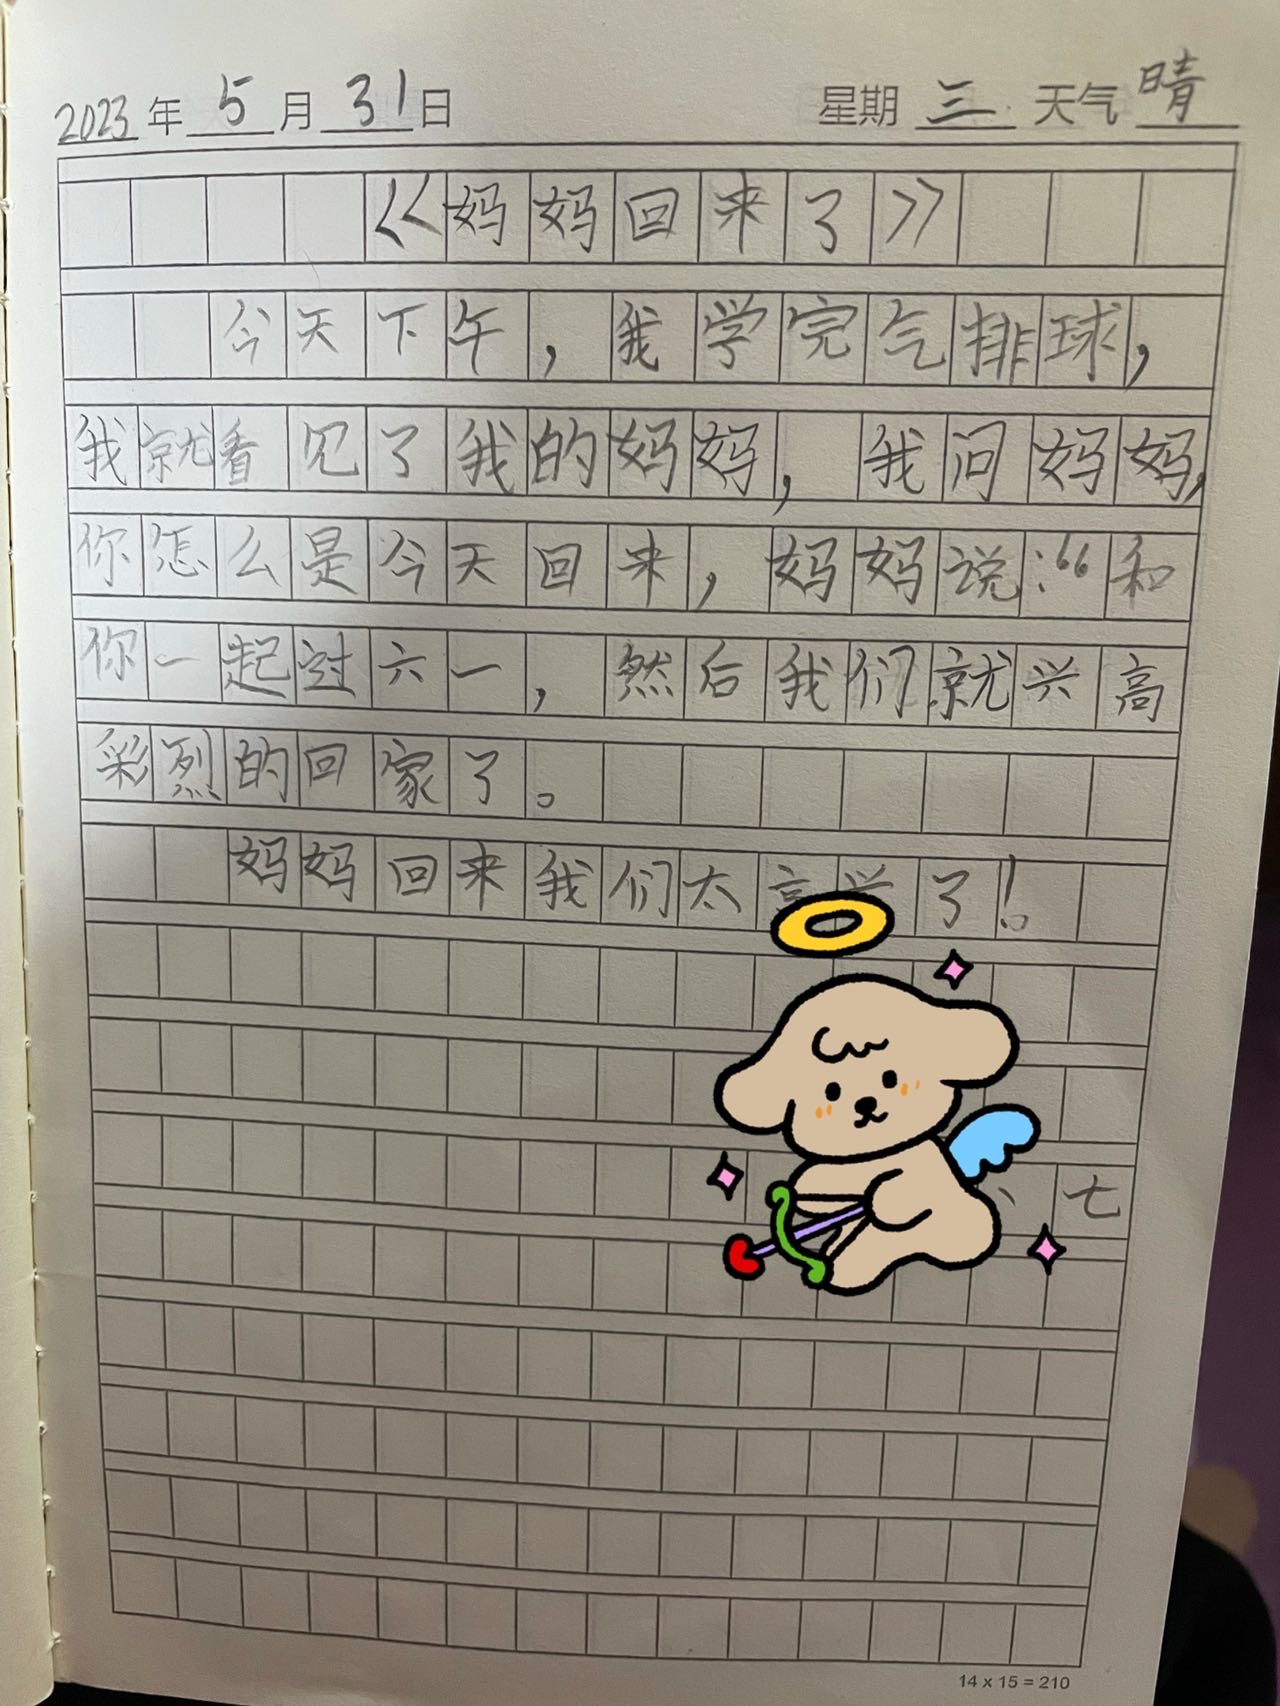 2023年5月31日 星期三 天气晴
《妈妈回来了》
今天下午，我学完气排球，
我就看见了我的妈妈，我问妈妈，
你怎么是今天回来，妈妈说：“和
你一起过六一，然后我们就兴高
彩烈的回家了。
妈妈回来我们太高兴了！。
、七
14 x 15 = 210